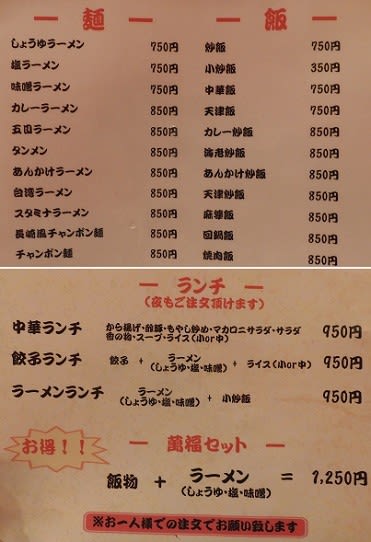 麺
しょうゆラーメン 750円
塩ラーメン 750円
味噌ラーメン 750円
カレーラーメン 850円
五目ラーメン 850円
タンメン 850円
あんかけラーメン 850円
台湾ラーメン 850円
スタミナラーメン 850円
長崎風チャンポン麺 850円
チャンポン麺 850円
飯
炒飯 750円
小炒飯 350円
中華飯 750円
天津飯 750円
カレー炒飯 850円
海老炒飯 850円
あんかけ炒飯 850円
天津炒飯 850円
麻婆飯 850円
回鍋飯 850円
焼肉飯 850円
ランチ
(夜もご注文頂けます)
中華ランチ から揚げ・酢豚・もやし炒め・マカロニサラダ・サラダ 950円
香の物・スープ・ライス(小or中)
餃子ランチ 餃子 + ラーメン + ライス(小or中) 950円
(しょうゆ・塩・味噌)
ラーメンランチ ラーメン + 小炒飯 950円
(しょうゆ・塩・味噌)
お得!!
萬福セット
飯物 + ラーメン = 1,250円
(しょうゆ・塩・味噌)
※お一人様での注文でお願い致します